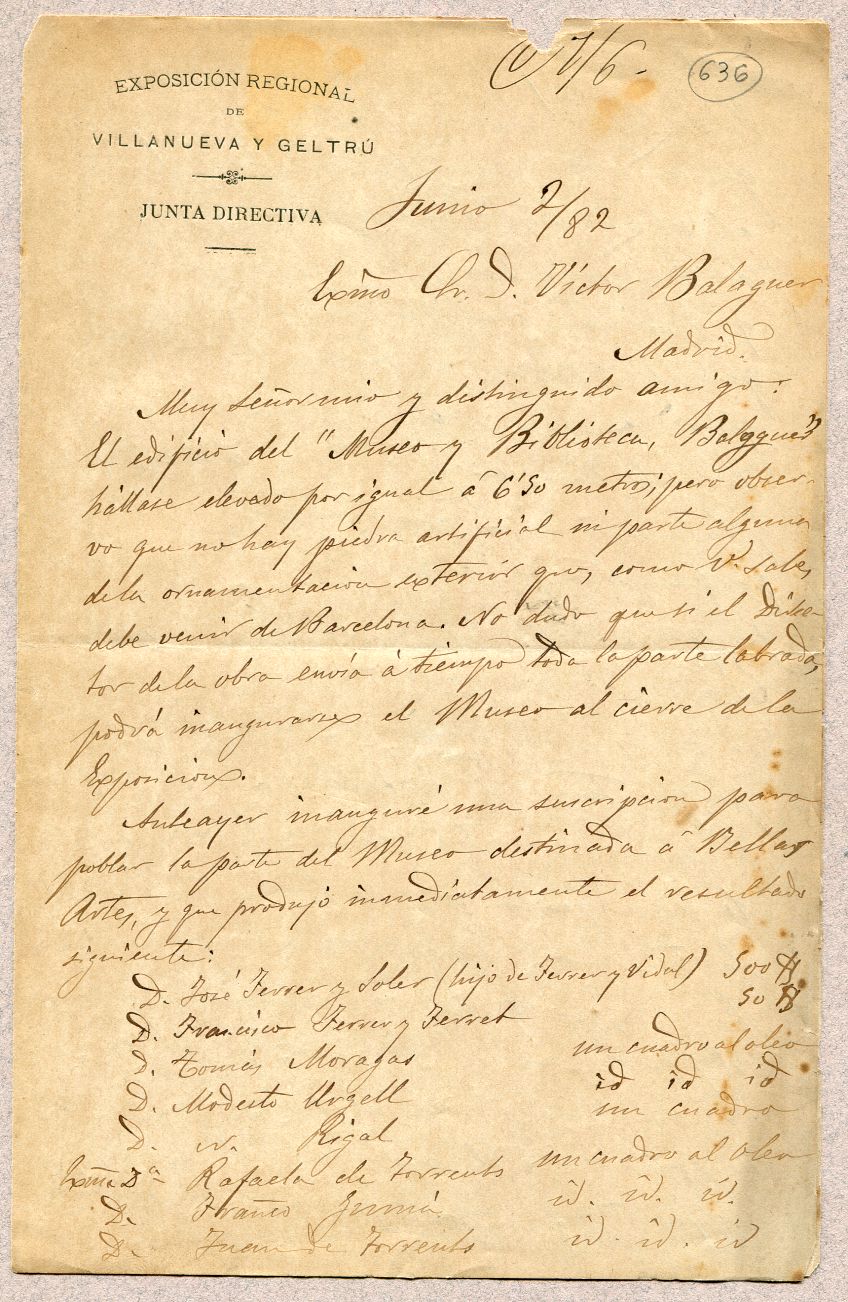 C 7/6-
636
EXPOSICIÓN REGIONAL
DE
VILLANUEVA Y GELTRÚ
JUNTA DIRECTIVA
Junio 2/82
Exmo Sr. D. Víctor Balaguer
Madrid.
Muy Señor mio y distinguido amigo:
El edificio del "Museo y Biblioteca, Balaguer"
hállase elevado por igual á 6'50 metros; pero obser-
vo que no hay piedra artificial ni parte alguna
de la ornamentacion exterior que, como V. sabe,
debe venir de Barcelona. No dudo que si el Direc-
tor de la obra envía á tiempo toda la parte labrada,
podrá inaugurarse el Museo al cierre de la
Exposicion.
Anteayer inauguré una suscripcion para
poblar la parte del Museo destinada á Bellas
Artes, y que produjo inmediatamente el resultado
siguiente:
D. José Ferrer y Soler (hijo de Ferrer y Vidal) 500
D. Francisco Ferrer y Ferret 50
D. Tomás Moragas un cuadro al oleo
D. Modesto Urgell id id id
D. N. Rigal un cuadro
Exma Dª Rafaela de Torrents un cuadro al oleo
D. Franco id. id. id.
D. Juan de Torrents id. id. id